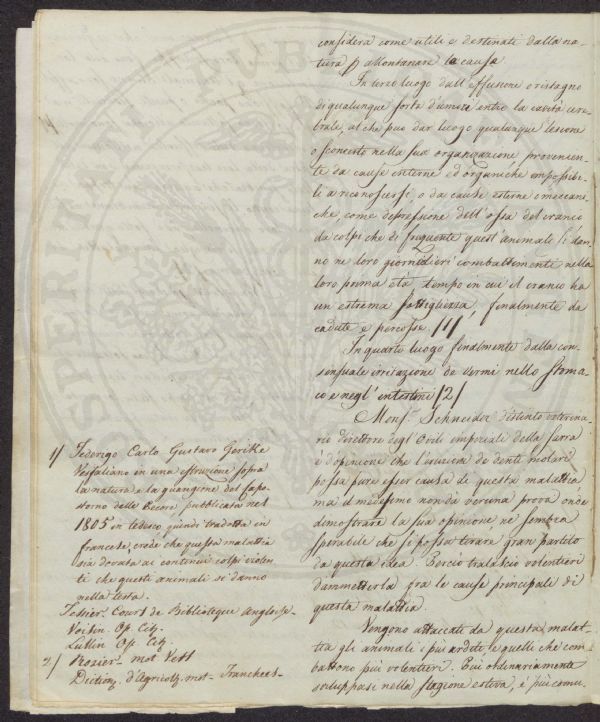 considera come utili e destinati dalla na-
tura p allontanare la causa
In terzo luogo dall'effusione o ristagno
di qualunque sorta d'umore entro la cavità cere-
brale, al che può dar luogo qualunque lesione
o sconcerto nella sua organizazione provenien-
te da cause interne ed organiche impossibi-
li a riconoscersi, o da cause esterne e mecani-
che, come depressione dell'ossa del cranio
da colpi che di frequente quest'animali si dan-
no ne loro giornalieri combattimenti nella
loro prima età, tempo in cui il cranio ha
un estrema sottigliezza, finalmente da
cadute e percosse /1/
In quarto luogo finalmente dalla con-
sensuale irritazione de vermi nello stoma-
co e negl'intestini /2/
Mons.r Schneider distinto veterina-
rio direttore degl'Ovili imperiali della
è d'opinione che l'eruzione de denti molari
possa pure esser causa de questa malattia
ma il medesimo non dà veruna prova onde
dimostrare la sua opinione ne sembra
sperabile che si possa tirare gran partito
da questa idea. Perciò tralascio volentieri
d'ammetterla fra le cause principale di
questa malattia.
Vengono attaccate da questa malat-
tia gli animali i più arditi, e quelli che com-
battono più volentieri. Essi ordinariamente
sviluppasi nella stagione estiva, è più comu-
1/ Federigo Carlo Gustavo Gerike
Vesfaliano in una istruzione sopra
la natura e la guarigione del capo-
storno delle Pecore, pubblicata nel
1805 in tedesco, quindi tradotta in
francese, crede che questa malattia
sia dovuta ai continui colpi violen-
ti che questi animali si danno
nella testa.
Tessier. Court de Biblioteque Angloise.
Voisin Op. Cit.
Lullin Op. Cit.
2/ Rozier mot Vers
Diction. d'Agricolt. mot